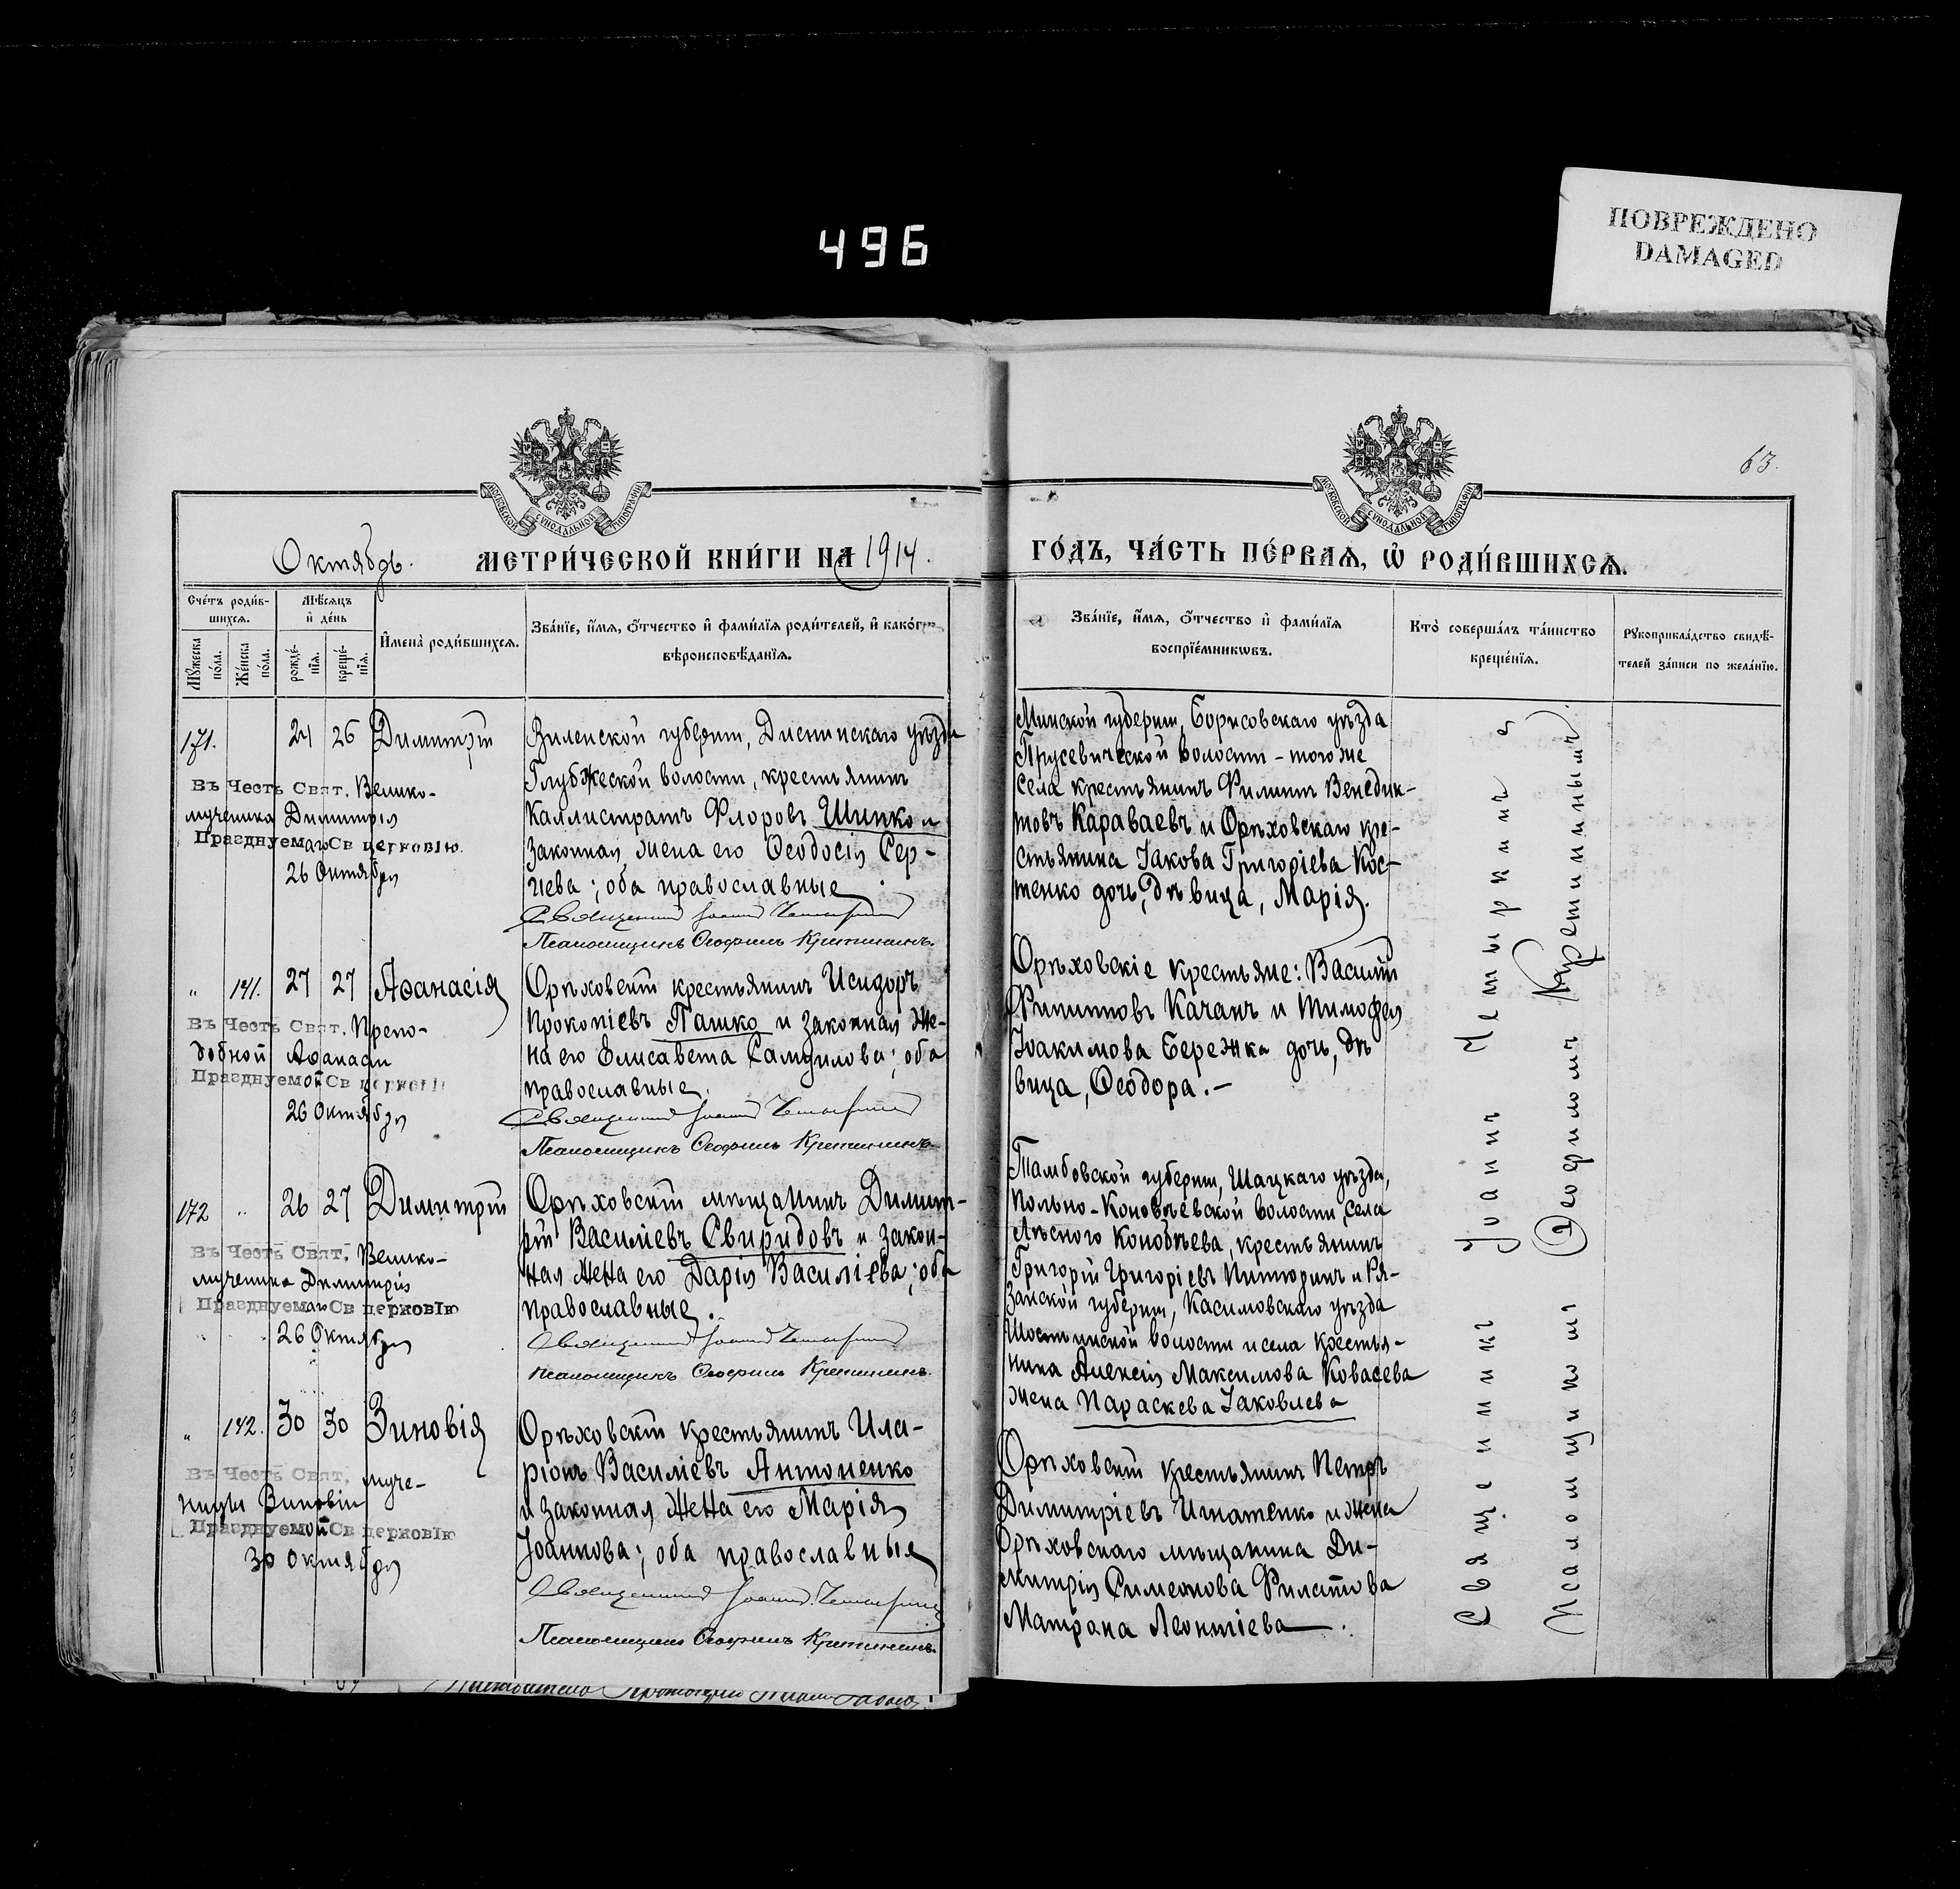 496
ПОВРЕЖДЕНО
DAMAGED
63.
МОСКОВСКОЙ СѴНОДАЛЬНОЙ ТИПОГРАФІИ
МОСКОВСКОЙ СѴНОДАЛЬНОЙ ТИПОГРАФІИ
Октябрь. МЕТРИ́ЧЕСКОЙ КНИ́ГИ НА 1914.
ГО́ДЪ, ЧА́СТЬ ПЕ́РВАѦ, Ѿ РОДИ́ВШИХСѦ.
Сче́тъ роди́в-
шихсѧ.
Мꙋ́жеска по́ла.
Же́нска по́ла.
Мѣ́сѧцъ
и҆ де́нь
рожде́-
нїѧ.
креще́-
нїѧ.
И҆мена̀ роди́вшихсѧ.
Зва́нїе, и҆́мѧ, ѻ҆́тчество и҆ фами́лїѧ роди́телей, и҆ како́гѡ
вѣроисповѣ́данїѧ.
Зва́нїе, и҆́мѧ, ѻ҆́тчество и҆ фами́лїѧ
воспрїе́мникѡвъ.
Кто̀ соверша́лъ та́инство
креще́нїѧ.
Рꙋкоприкла́дство свидѣ́-
телей за́писи по жела́нїю.
171. 24 26 Димитрій
Въ Честь Свят. Велико-
мученика Димитрія
Празднуемаго Св церковію
26 Октября
Виленской губерніи, Дисненскаго уѣзда
Глубокской волости, крестьянинъ
Каллистратъ Флоровъ Шинко и
законная жена его Ѳеодосія Сер-
гіева; оба православные
Священникъ Іоаннъ Четыркинъ
Псаломщикъ Ѳеофилъ Кретининъ.
Минской губерніи, Борисовскаго уѣзда
Прусевической волости - того же
села крестьянинъ Филиппъ Венедик-
товъ Караваевъ и Орѣховскаго кре-
стьянина Іакова Григоріева Кос-
тенко дочь, дѣвица, Марія.
" 141. 27 27 Аѳанасія
Въ Честь Свят. Препо-
добной Аѳанасіи
Празднуемой Св церковію
26 Октября
Орѣховскій крестьянинъ Исидоръ
Прокопіевъ Пашко и законная же-
на его Елисавета Самуилова; оба
православные.
Священникъ Іоаннъ Четыркинъ
Псаломщикъ Ѳеофилъ Кретининъ
Орѣховскіе крестьяне: Василій
Филипповъ Качанъ и Тимофея
Іоакимова Бережка дочь, дѣ
вица, Ѳеодора.-
172 " 26 27 Димитрій
Въ Честь Свят. Велико-
мученика Димитрія
Празднуемаго Св церковію
26 Октября
Орѣховскій мѣщанинъ Димит-
рій Василіевъ Свиридовъ и закон-
ная жена его Дарія Василіева; оба
православные.
Священникъ Іоаннъ Четыркинъ
Псаломщикъ Ѳеофилъ Кретининъ.
Тамбовской губерніи, Шацкаго уѣзда,
Польно-Конобѣевской волости, села
Лѣсного Конобѣева, крестьянинъ
Григорій Григоріевъ Питюринъ и Ря-
занской губерніи, Касимовскаго уѣзда
волости и села крестья-
нина Алексія Максимова Ковасева
жена Параскева Іаковлева
" 142. 30 30 Зиновія
Въ Честь Свят. муче-
ницы Зиновіи
Празднуемой Св церковію
30 Октября
Орѣховскій крестьянинъ Ила-
ріонъ Василіевъ Антоненко
и законная жена его Марія
Іоаннова; оба православные
Священникъ Іоаннъ Четыркинъ
Псаломщикъ Ѳеофилъ Кретининъ.
Орѣховскій крестьянинъ Петръ
Димитріевъ Игнатенко и жена
Орѣховскаго мѣщанина Ди-
митрія Симеонова Филатова
Матрона Леонтіева.
Священникъ Іоаннъ Четыркинъ съ
Псаломщикомъ Ѳеофиломъ Кретининымъ.